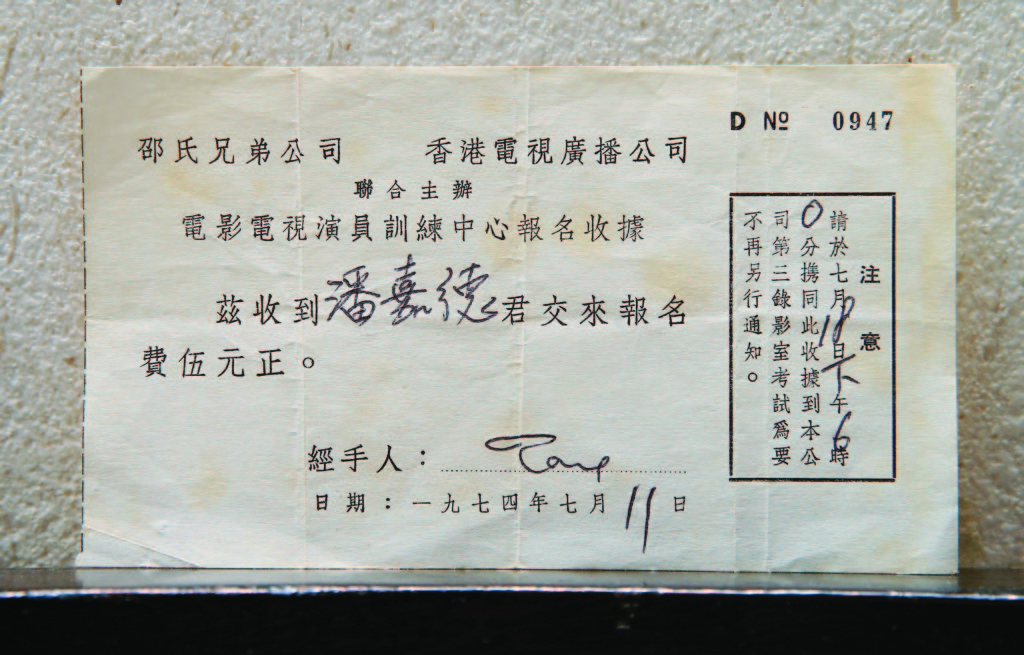 D № 0947
邵氏兄弟公司 香港電視廣播公司
聯合主辦
電影電視演員訓練中心報名收據
茲收到潘嘉德君交來報名
費伍元正。
經手人：
日期：一九七四年七月11日
注意
請於七月18日下午6時
0分携同此收據到本公
司第三錄影室考試爲要
不再另行通知。